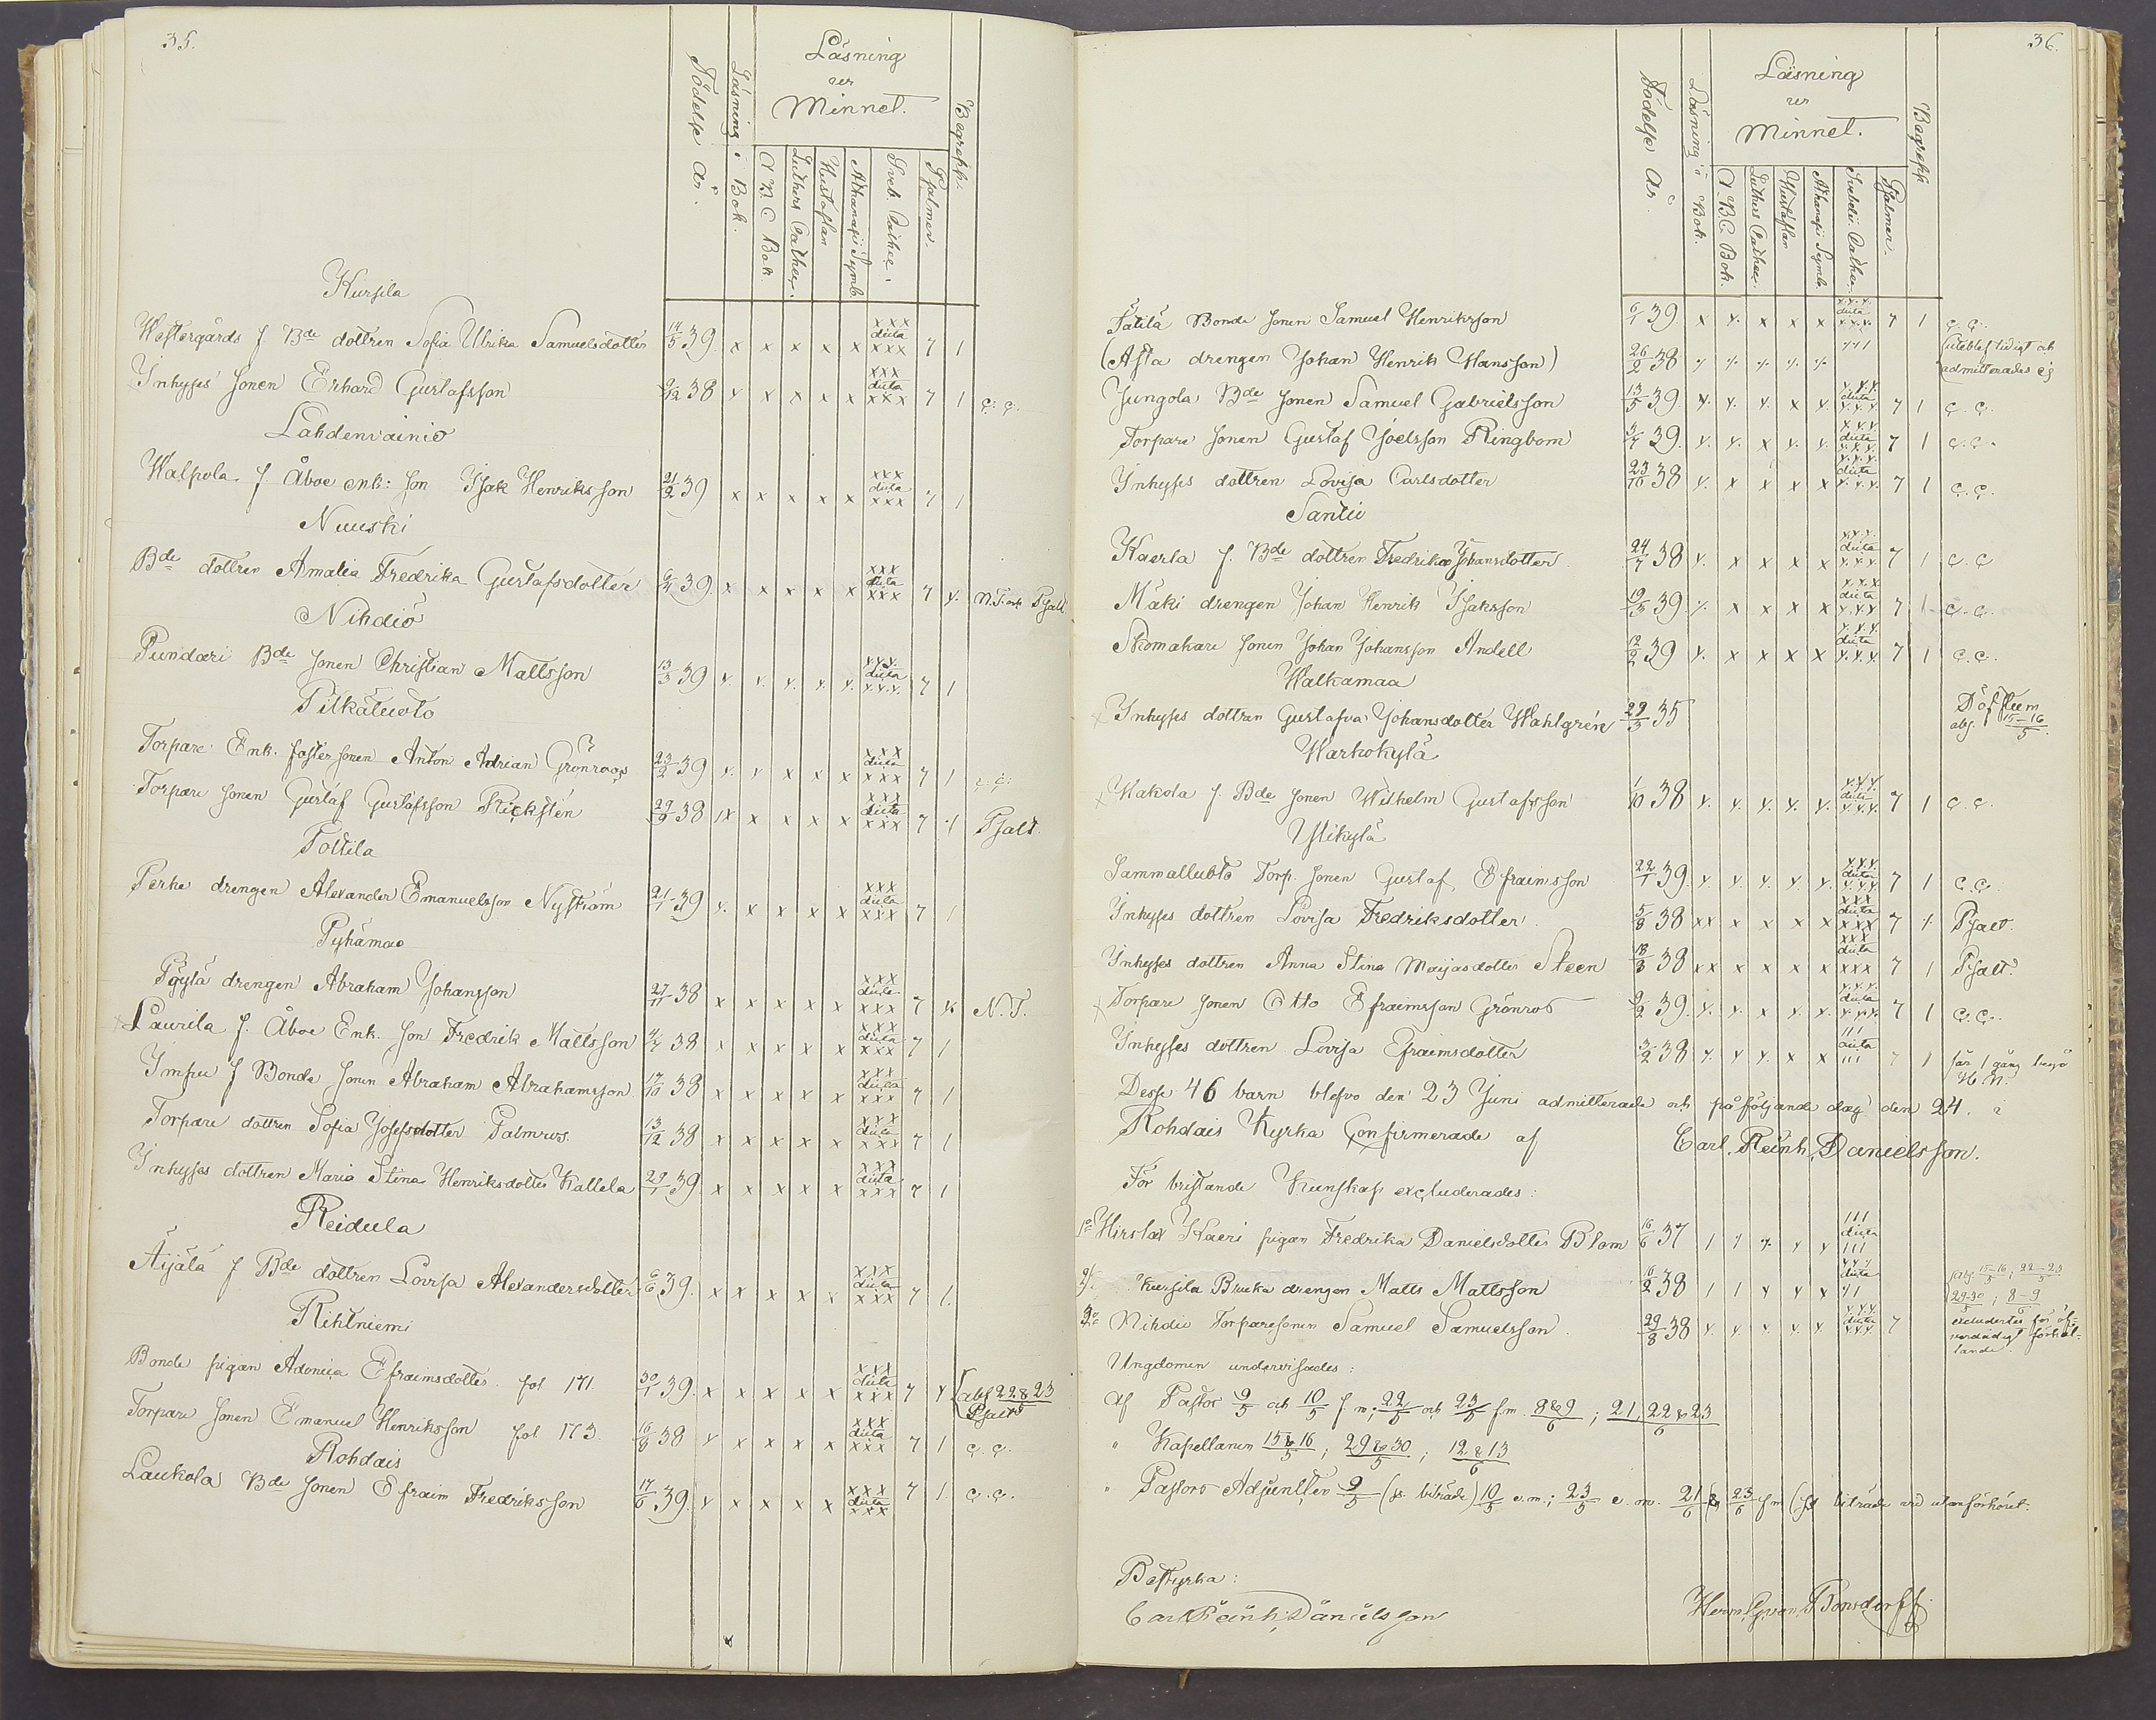 35.
Födelse År.
Läsning i Bok.
Läsning
ur
Minnet.
A B C Bok.
Luthers Cathec.
Hustaflan
Athanasii Symb.
Sveb. Cathec.
Psalmer.
Begrepp.
Kursila
Westergårds f. Bde dottren Sofia Ulrika Samuelsdotter 14/5 39. x x x x x xxx duta xxx 7 1
Inhyses sonen Erhard Gustafsson 9/12 38 x x x x x xxx duta xxx 7 1 c. c.
Lahdenvainio
Walpola f. Åboe enk: son Isak Henriksson 21/2 39 x x x x x xxx duta xxx 7 1
Nuuski
Bde dottren Amalia Fredrika Gustafsdotter 6/4 39. x x x x x xxx duta xxx 7 N.T. och Psalt
Nihdiö
Pundari Bde sonen Christian Mattsson 13/3 39 duta 7 1
Pitkäluoto
Torpare Enk. foster sonen Anton Adrian Grönroos 23/2 39 x x x xxx duta xxx 7 1 c. c.
Torpare sonen Gustaf Gustafsson Rickstén 29/9 38 x x x x xxx duta xxx 7 Psalt.
Pottila
Perhe drengen Alexander Emanuelsson Nyström 21/1 39 x x x x xxx duta xxx 7 1
Pyhämaa
Päylä drengen Abraham Johansson 27/11 38 x x x x x xxx duta xxx 7 N.T.
Laurila f. Åboe Enk. son Fredrik Mattsson 4/7 38 x x x x x xxx duta xxx 7 1
Impu f Bonde sonen Abraham Abrahamsson 17/10 38 x x x x x xxx duta xxx 7 1
Torpare dottren Sofia Josefsdotter Palmros. 13/12 38 x x x x x xxx duta xxx 7 1
Inhyses dottren Maria Stina Henriksdotter Kallela 29/1 39 x x x x x xxx duta xxx 7 1
Reidula
Äijälä f Bde dottren Lovisa Alexandersdotter 6/6 39. x x x x xxx duta xxx 7 1.
Rihtniemi
Bonde pigan Adamina Efraimsdotter. fol 171. 30/1 39. x x x x x xxx duta xxx 7 abs 22 & 23/5 Psalt
Torpare sonen Emanuel Henriksson fol 173. 16/8 38 x x x x xxx duta xxx 7 1 c. c.
Rohdais
Laukola Bde sonen Efraim Fredriksson 17/6 39. x x x x xxx duta xxx 7 1 c. c.
36.
Födelse År.
Läsning i Bok.
Läsning
ur
Minnet.
A. B. C. Bok.
Luthers Cathec.
Hustaflan
Athanasii Symb.
Svebelii Cathec.
Psalmer.
Begrepp
Tätilä Bonde sonen Samuel Henriksson 6/1 39 x x x x duta 7 1 c. c.
(Asta drengen Johan Henrik Hansson) 26/2 38 (uteblef tidigt och admitterades ej
Jungola Bde sonen Samuel Gabrielsson 13/5 39 duta 7 1 c. c.
Torpare sonen Gustaf Joelsson Ringbom 3/7 39. duta 7 1 c. c.
Inhyses dottren Lovisa Carlsdotter 23/10 38 x x x x duta 7 1 c. c.
Santio
Kaerla f. Bde dottren Fredrika Johansdotter 24/7 38 x x x x duta 7 1 c. c
Mäki drengen Johan Henrik Isaksson 19/3 39 x x x x duta 7 1 c. c.
Skomakare sonen Johan Johansson Andell 12/2 39 x x x x duta 7 1 c. c.
Walkamaa
x Inhyses dottren Gustafva Johansdotter Wahlgrén 29/3 35 Döfstum abs. 15-16/5.
Warhokylä
x Wakola f. Bde sonen Wilhelm Gustafsson 1/10 38 duta 7 1 c. c.
Ylikylä
Sammalluoto Torp. sonen Gustaf Efraimsson 22/1 39. duta 7 1 c. c.
Inhyses dottren Lovisa Fredriksdotter. 5/8 38 xx x x x x xxx duta xxx 7 Psalt.
Inhyses dottren Anna Stina Maijasdotter Steen 18/3 38 xx x x x x xxx duta xxx 7 1 Psalt.
x Torpare sonen Otto Efraimsson Grönros 9/2 39. duta 7 1 c. c.
Inhyses dottren Lovisa Efraimsdotter 3/2 38 x x 111 duta 111 7 1 får 1 gång begå H. N.
Desse 46 barn blefvo den 23 Juni admitterade och påföljande dag den 24. i
Rohdais Kyrka Confirmerade af Carl. Reinh. Danielsson.
För bristande Kunskap excluderades:
1o Hirslax Kaeri pigan Fredrika Danielsdotter Blom 16/6 37 111 duta 111
2o Kursila Bruka drengen Matts Mattsson 16/2 38 1 1 duta (abs. 15-16/5; 22-23/5 29-30/5; 8-9/6
3o Nihdiö Torparesonen Samuel Samuelsson. 29/8 38 duta 7 excludertes för oförhållande.
Ungdomen undervisades:
Af Pastor 9/5 och 10/5 f. m; 22/5 och 23/5 f.m. 8 & 9/6; 21, 22 & 23/6
" Kapellanen 15 & 16/5; 29 & 30/5; 12 & 13/6
" Pastors Adjuncten 9/5 (ss. biträde) 10/5 e.m.; 23/5 e. m. 21/6 & 23/6 f m (ss biträde vid utanförhöret.
Bestyrka:
Carl Reinh. Danielsson Herm. G. von Bonsdorff